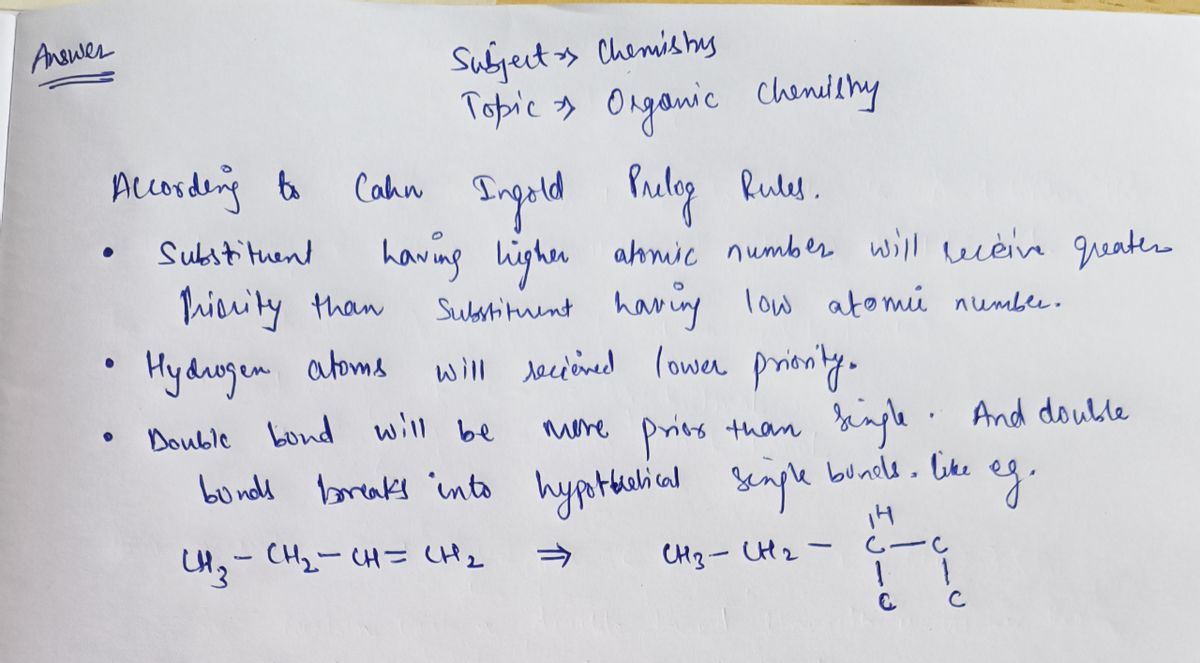 Answer
Subject => Chemistry
Topic => Organic Chemistry
According to Cahn Ingold Prelog Rules.
• Substituent having higher atomic number will receive greater
Priority than Substituent having low atomic number.
• Hydrogen atoms will recieved lower priority.
• Double bond will be more prior than single. And double
bonds breaks into hypothetical single bonds. like eg.
H
CH3 - CH2 - CH = CH2 => CH3 - CH2 - C - C
C C